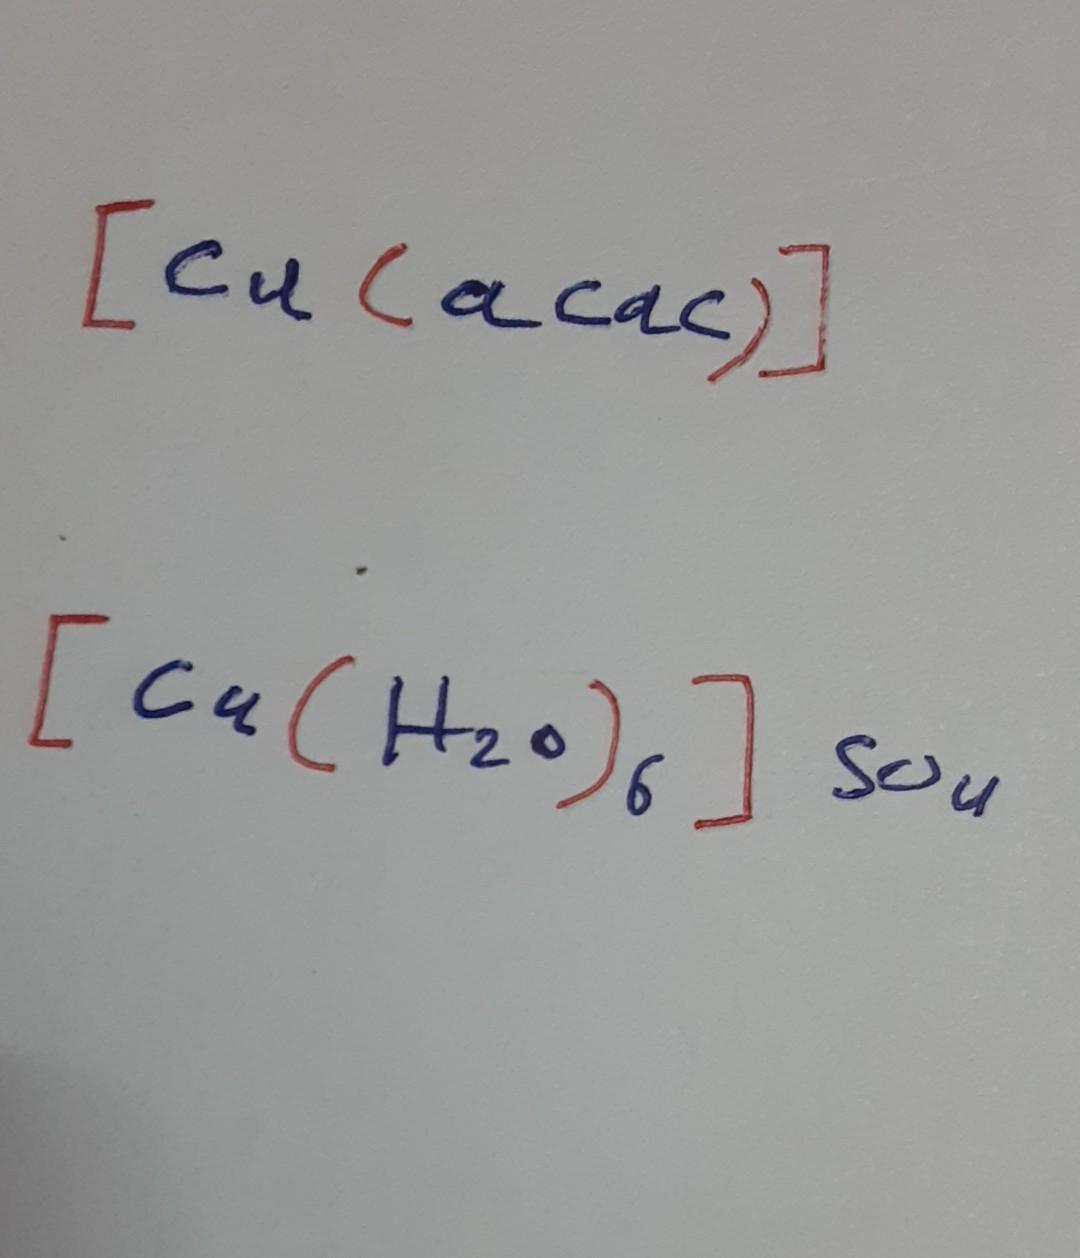 [Cu(acac)]
[Cu(H2O)6]SO4